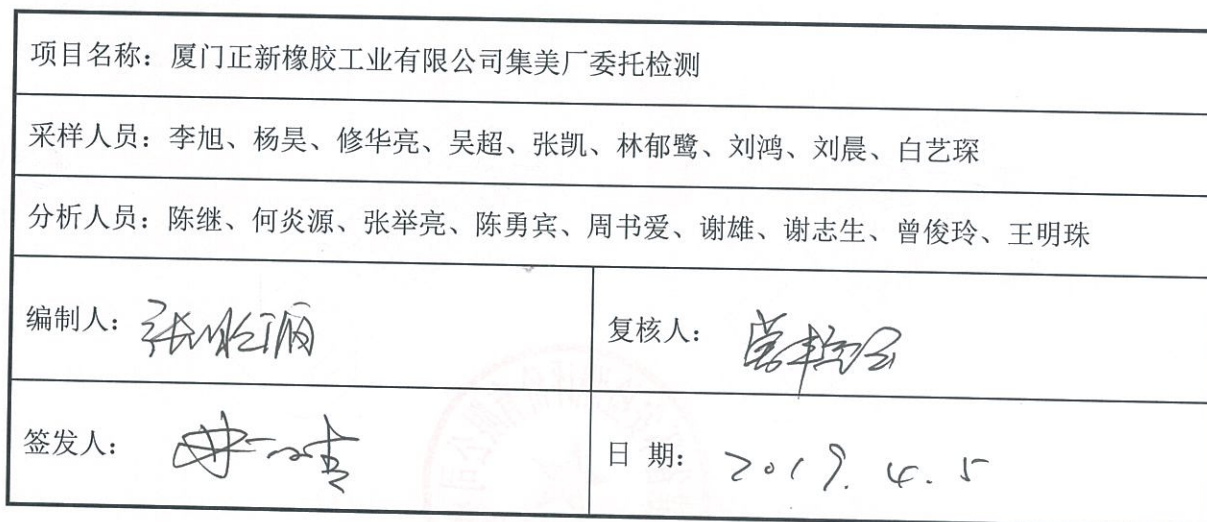 项目名称：厦门正新橡胶工业有限公司集美厂委托检测
采样人员：李旭、杨昊、修华亮、吴超、张凯、林郁鹭、刘鸿、刘晨、白艺琛
分析人员：陈继、何炎源、张举亮、陈勇宾、周书爱、谢雄、谢志生、曾俊玲、王明珠
编制人：
复核人：
签发人：
日 期：2019.4.5